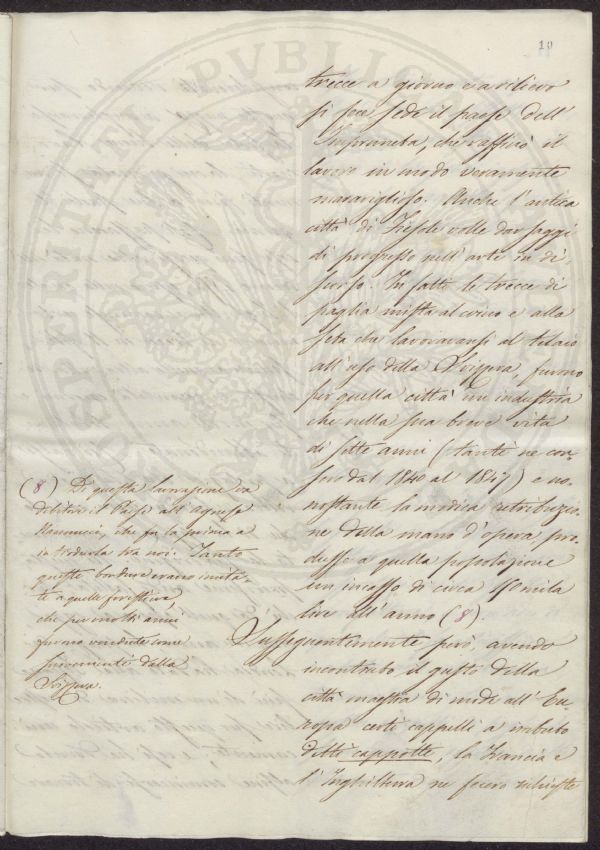 10
trecce a giorno e a rilievo
si fece sede il paese dell'
Impruneta, che raffinò il
lavoro in modo veramente
maraviglioso. Anche l'antica
città di Fiesole volle dar saggi
di progresso nell'arte in di-
scorso. In fatti le trecce di
paglia mista al crino e alla
seta che lavoravansi al telaio
all'uso della Svizzera, furono
per quella città un'industria
che nella sua breve vita
di sette anni (tanti ne con-
tò dal 1840 al 1847) e no-
nostante la modica retribuzio-
ne della mano d'opera, pro-
dusse a quella popolazione
un incasso di circa 50 mila
lire all'anno (8).
Susseguentemente però, avendo
incontrato il gusto della
città maestra di mode all'Eu-
ropa certi cappelli a imbuto
detti cappotte, la Francia e
l'Inghilterra ne fecero richieste
(8) Di questa lavorazione va
debitore il Paese all'Agnese
che fu la prima a
introdurla tra noi. Tanto
queste bordure erano imita-
te a quelle forestiere,
che per molti anni
furono vendute come
provenienti dalla
Svizzera.